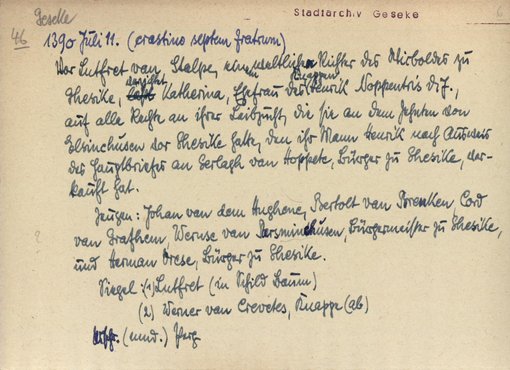 Geseke
Stadtarchiv Geseke
6
46
1390 Juli 11. (crastino septem fratrum)
Vor Lutfret van Stalpe, einem weltlichen Richter des Wirboldes zu
Ghesike, verzichtet Katharina, Ehefrau des Knappen Henrik Noppentris d. J.,
auf alle Rechte an ihrer Leibzucht, die sie an dem Zehnten von
Elsinchusen vor Ghesike hatte, den ihr Mann Henrik nach Ausweis
des Hauptbriefes an Gerlagh van Hoppeke, Bürger zu Ghesike, ver-
kauft hat.
Zeugen: Johan van dem Hughene, Bertolt van Brenken Cord
van Grafhem, Wernse van Persminchusen, Bürgermeister zu Ghesike,
und Herman Drese, Bürger zu Ghesike.
Siegel: (1) Lutfret (im Schild Baum)
(2) Werner van Crevetes, Knappe (ab)
Urschr. (nnd.) Perg